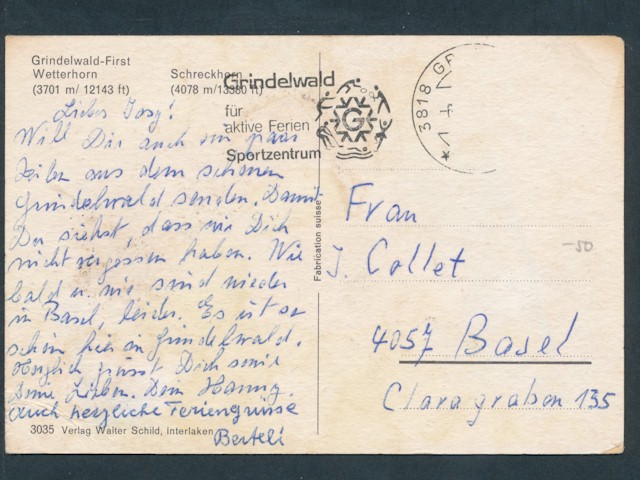 Grindelwald-First
Wetterhorn
(3701 m/ 12143 ft)
Schreckhorn
(4078 m/13380 ft)
Grindelwald
für
aktive Ferien
Sportzentrum
G
3818 GR
Liebes Josy!
Will Dir auch ein paar
Zeilen aus dem schönen
Grindelwald senden. Damit
Du siehst, dass wir Dich
nicht vergessen haben. Wie
bald u. wir sind wieder
in Basel, leider. Es ist so
schön hier in Grindelwald.
Herzlich grüsst Dich sowie
Deine Lieben. Dein Hanny.
Auch herzliche Feriengrüsse
Berteli
3035 Verlag Walter Schild, Interlaken
Fabrication suisse
Frau
J. Collet
4057 Basel
Claragraben 135
-50